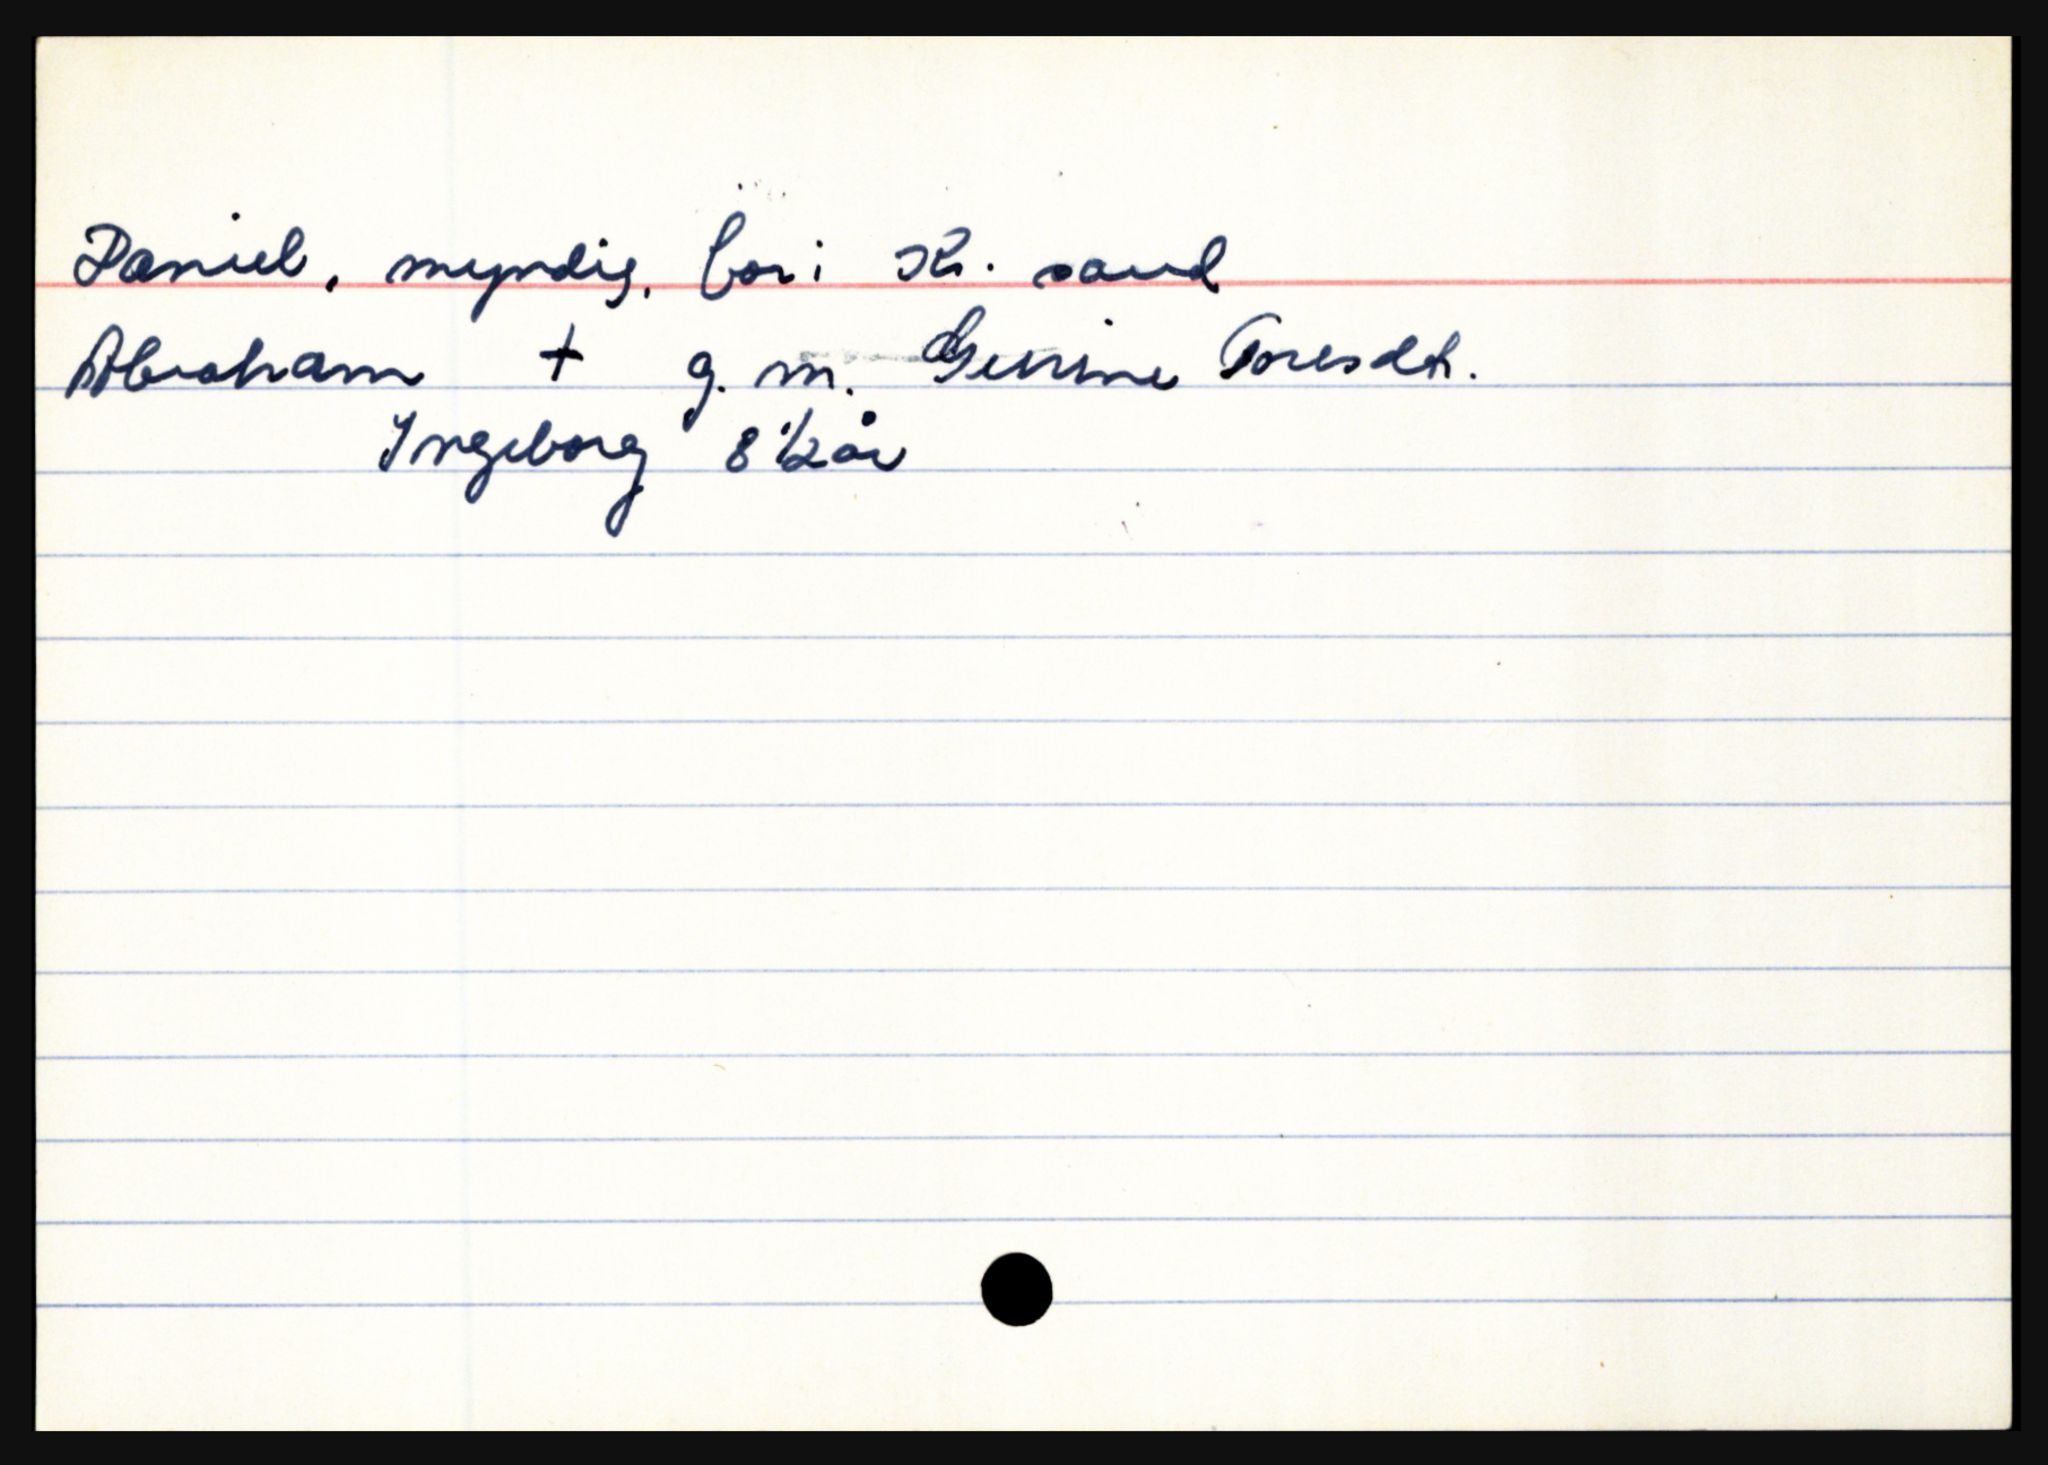 Daniel, myndig, bor i Kr. sand
Abraham + g. m. Gurine Toresdtr.
Ingeborg 8 1/2 år